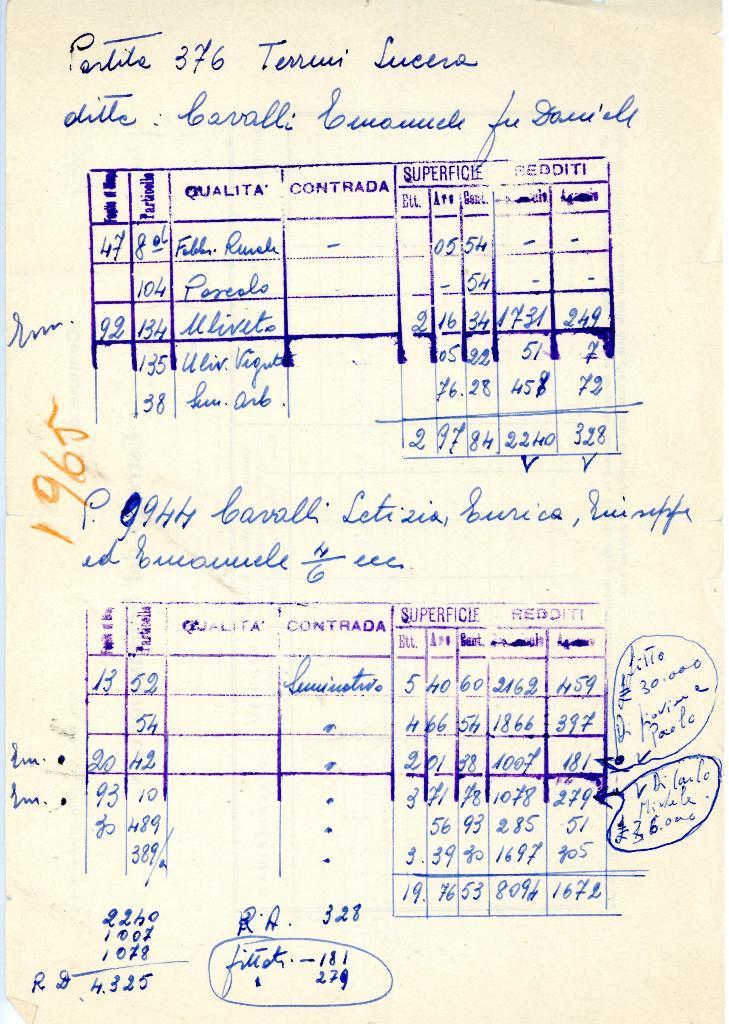 Partita 376 Terreni Lucera
ditta: Cavalli Emanuele fu Daniele
Foglio di Mappa Particella QUALITA' CONTRADA SUPERFICIE REDDITI
Ett. Are Cent. Agrario
47 8 Fabbr. Rurale - 05 54 - -
104 Pascolo - 54 - -
Em. 92 134 Uliveto 2 16 34 1731 249
135 Uliv. Vignato 05 22 51 7
38 Sem. Arb. 76.28 458 72
2 97 84 2240 328
1965
P. 9944 Cavalli Letizia, Enrica, Giuseppe
ed Emanuele 4/6 ecc.
Foglio di Mappa Particella QUALITA' CONTRADA SUPERFICIE REDDITI
Ett. Are Cent. Agrario
13 52 Seminativo 5 40 60 2162 459
54 " 4 66 54 1866 397
Em. • 20 42 " 2 01 38 1007 181
Em. • 93 10 " 3 71 78 1078 279
30 489 " 56 93 285 51
389/a " 3.39 30 1697 305
19. 76 53 8094 1672
fitto
₤ 30.000
Di Giovine
Paolo
Di Carlo
Michele
₤ 36.000
2240
1007
1078
R D 4.325
R.A. 328
fittati - 181
" 279